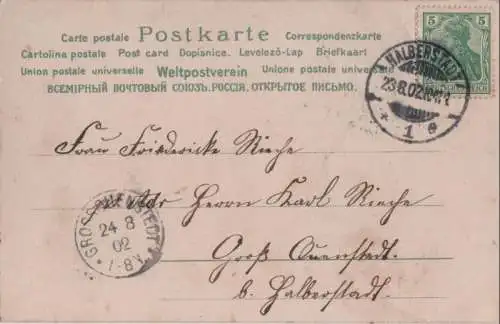 Carte postale Postkarte Correspondenzkarte
Cartolina postale Post card Dopisnice. Levelező-Lap Briefkaart
Union postale universelle Weltpostverein Unione postale universale
ВСЕМІРНЫЙ ПОЧТОВЫЙ СОЮЗЪ. РОССІЯ. ОТКРЫТОЕ ПИСЬМО.
5 5
HALBERSTADT
23.8.02
* 1 e
Frau Friedericke Rieche
Adr Herrn Karl Rieche
Groß Quenstedt
b. Halberstadt.
GROSS QUENSTEDT
24 8
02
7-8V.